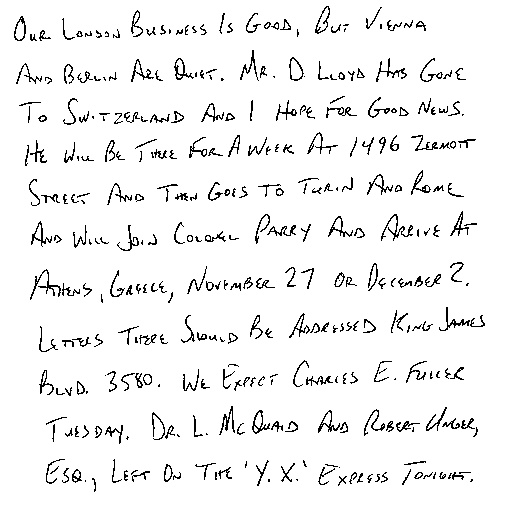 Our London Business Is Good, But Vienna
And Berlin Are Quiet. Mr. D Lloyd Has Gone
To Switzerland And I Hope For Good News.
He Will Be There For A Week At 1496 Zermott
Street And Then Goes To Turin And Rome
And Will Join Colonel Parry And Arrive At
Athens, Greece, November 27 or December 2.
Letters There Should Be Addressed King James
Blvd. 3580. We Expect Charles E. Fuller
Tuesday. Dr. L. McQuaid And Robert Unger,
Esq., Left On The 'Y. X.' Express Tonight.